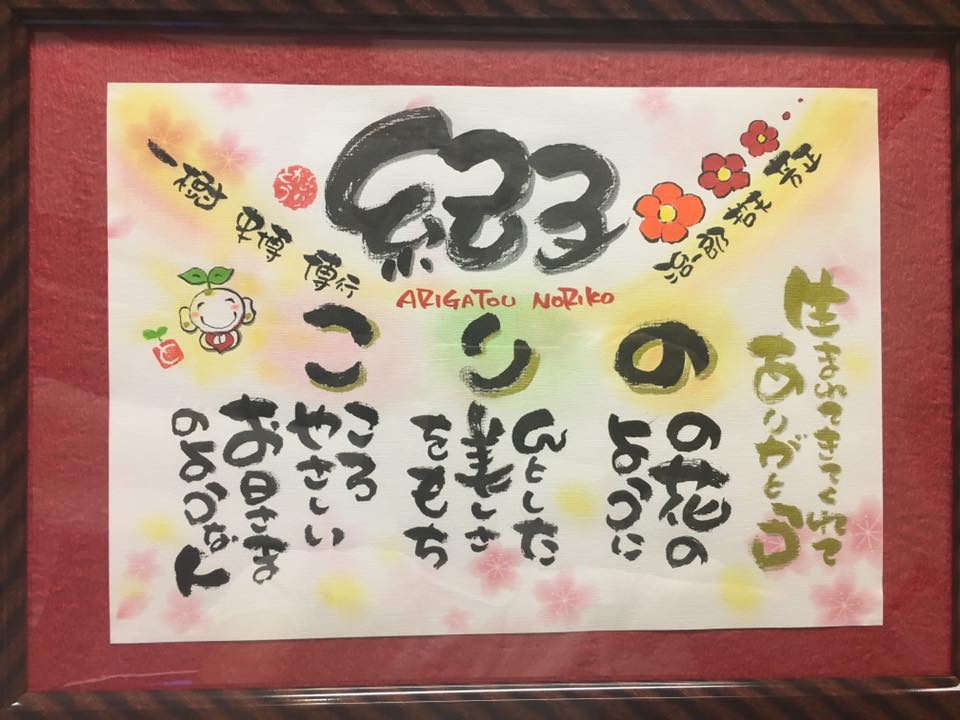 紀子
ARIGATOU NORIKO
一樹
博行
生まれてきてくれて
ありがとう
の
の花の
ように
り
んとした
美しさ
をもち
こ
ころ
やさしい
お日さま
のような人